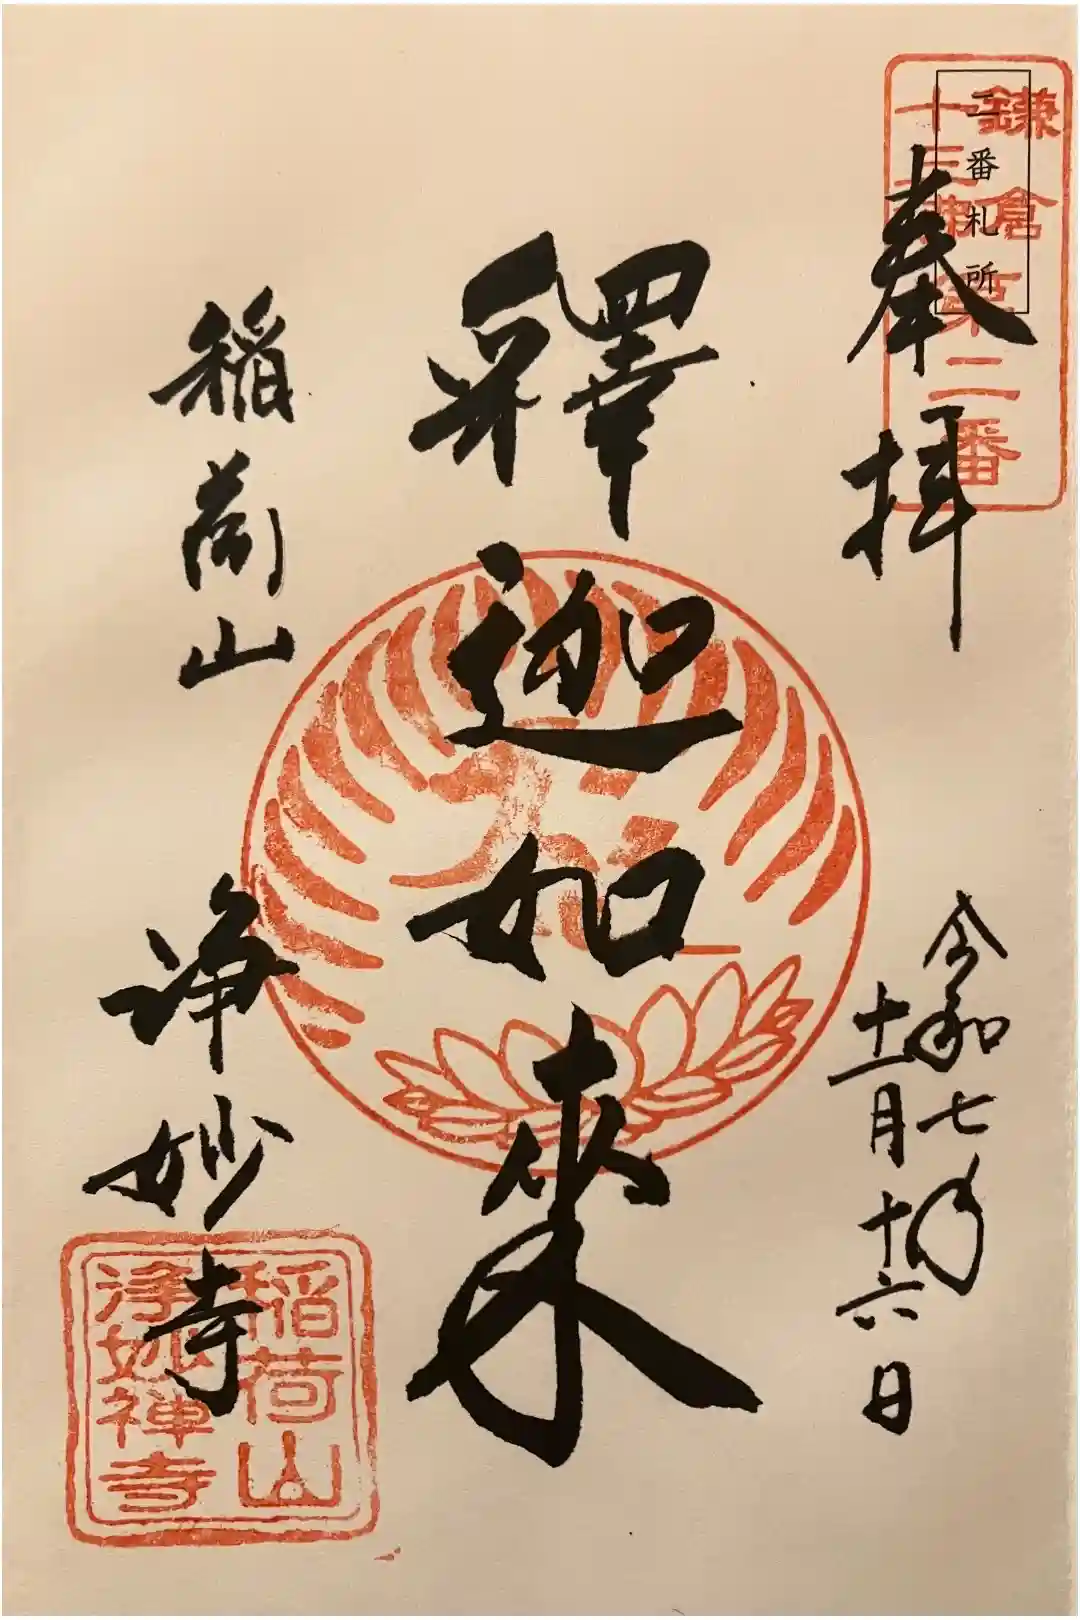 鎌倉
十三佛
第二番
二番札所
奉拝
令和七年
十一月十六日
釋迦如来
稲荷山
浄妙寺
稲荷山
浄妙禅寺